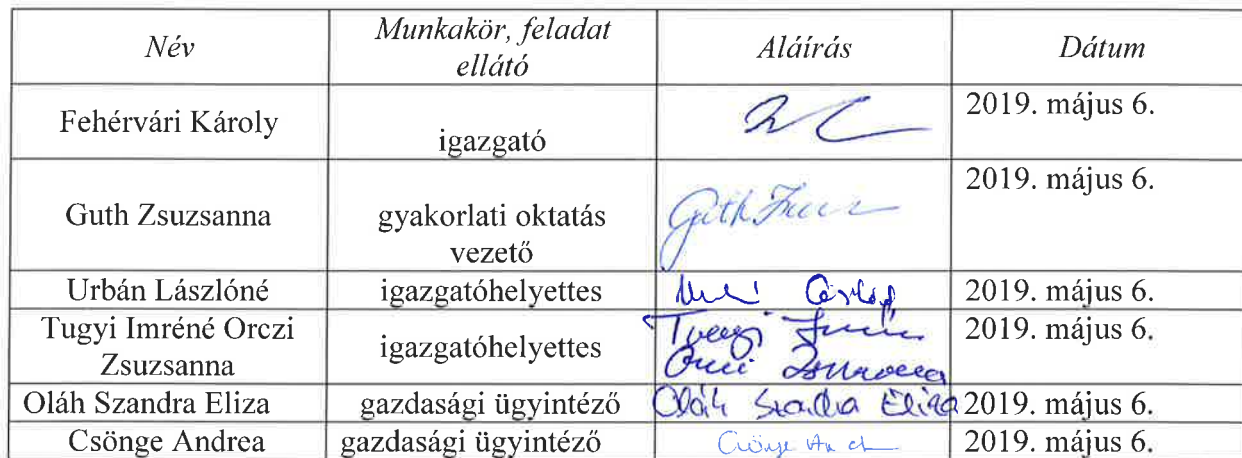 Név Munkakör, feladat ellátó Aláírás Dátum
Fehérvári Károly igazgató 2019. május 6.
Guth Zsuzsanna gyakorlati oktatás vezető 2019. május 6.
Urbán Lászlóné igazgatóhelyettes 2019. május 6.
Tugyi Imréné Orczi Zsuzsanna igazgatóhelyettes 2019. május 6.
Oláh Szandra Eliza gazdasági ügyintéző Oláh Szandra Eliza 2019. május 6.
Csönge Andrea gazdasági ügyintéző 2019. május 6.